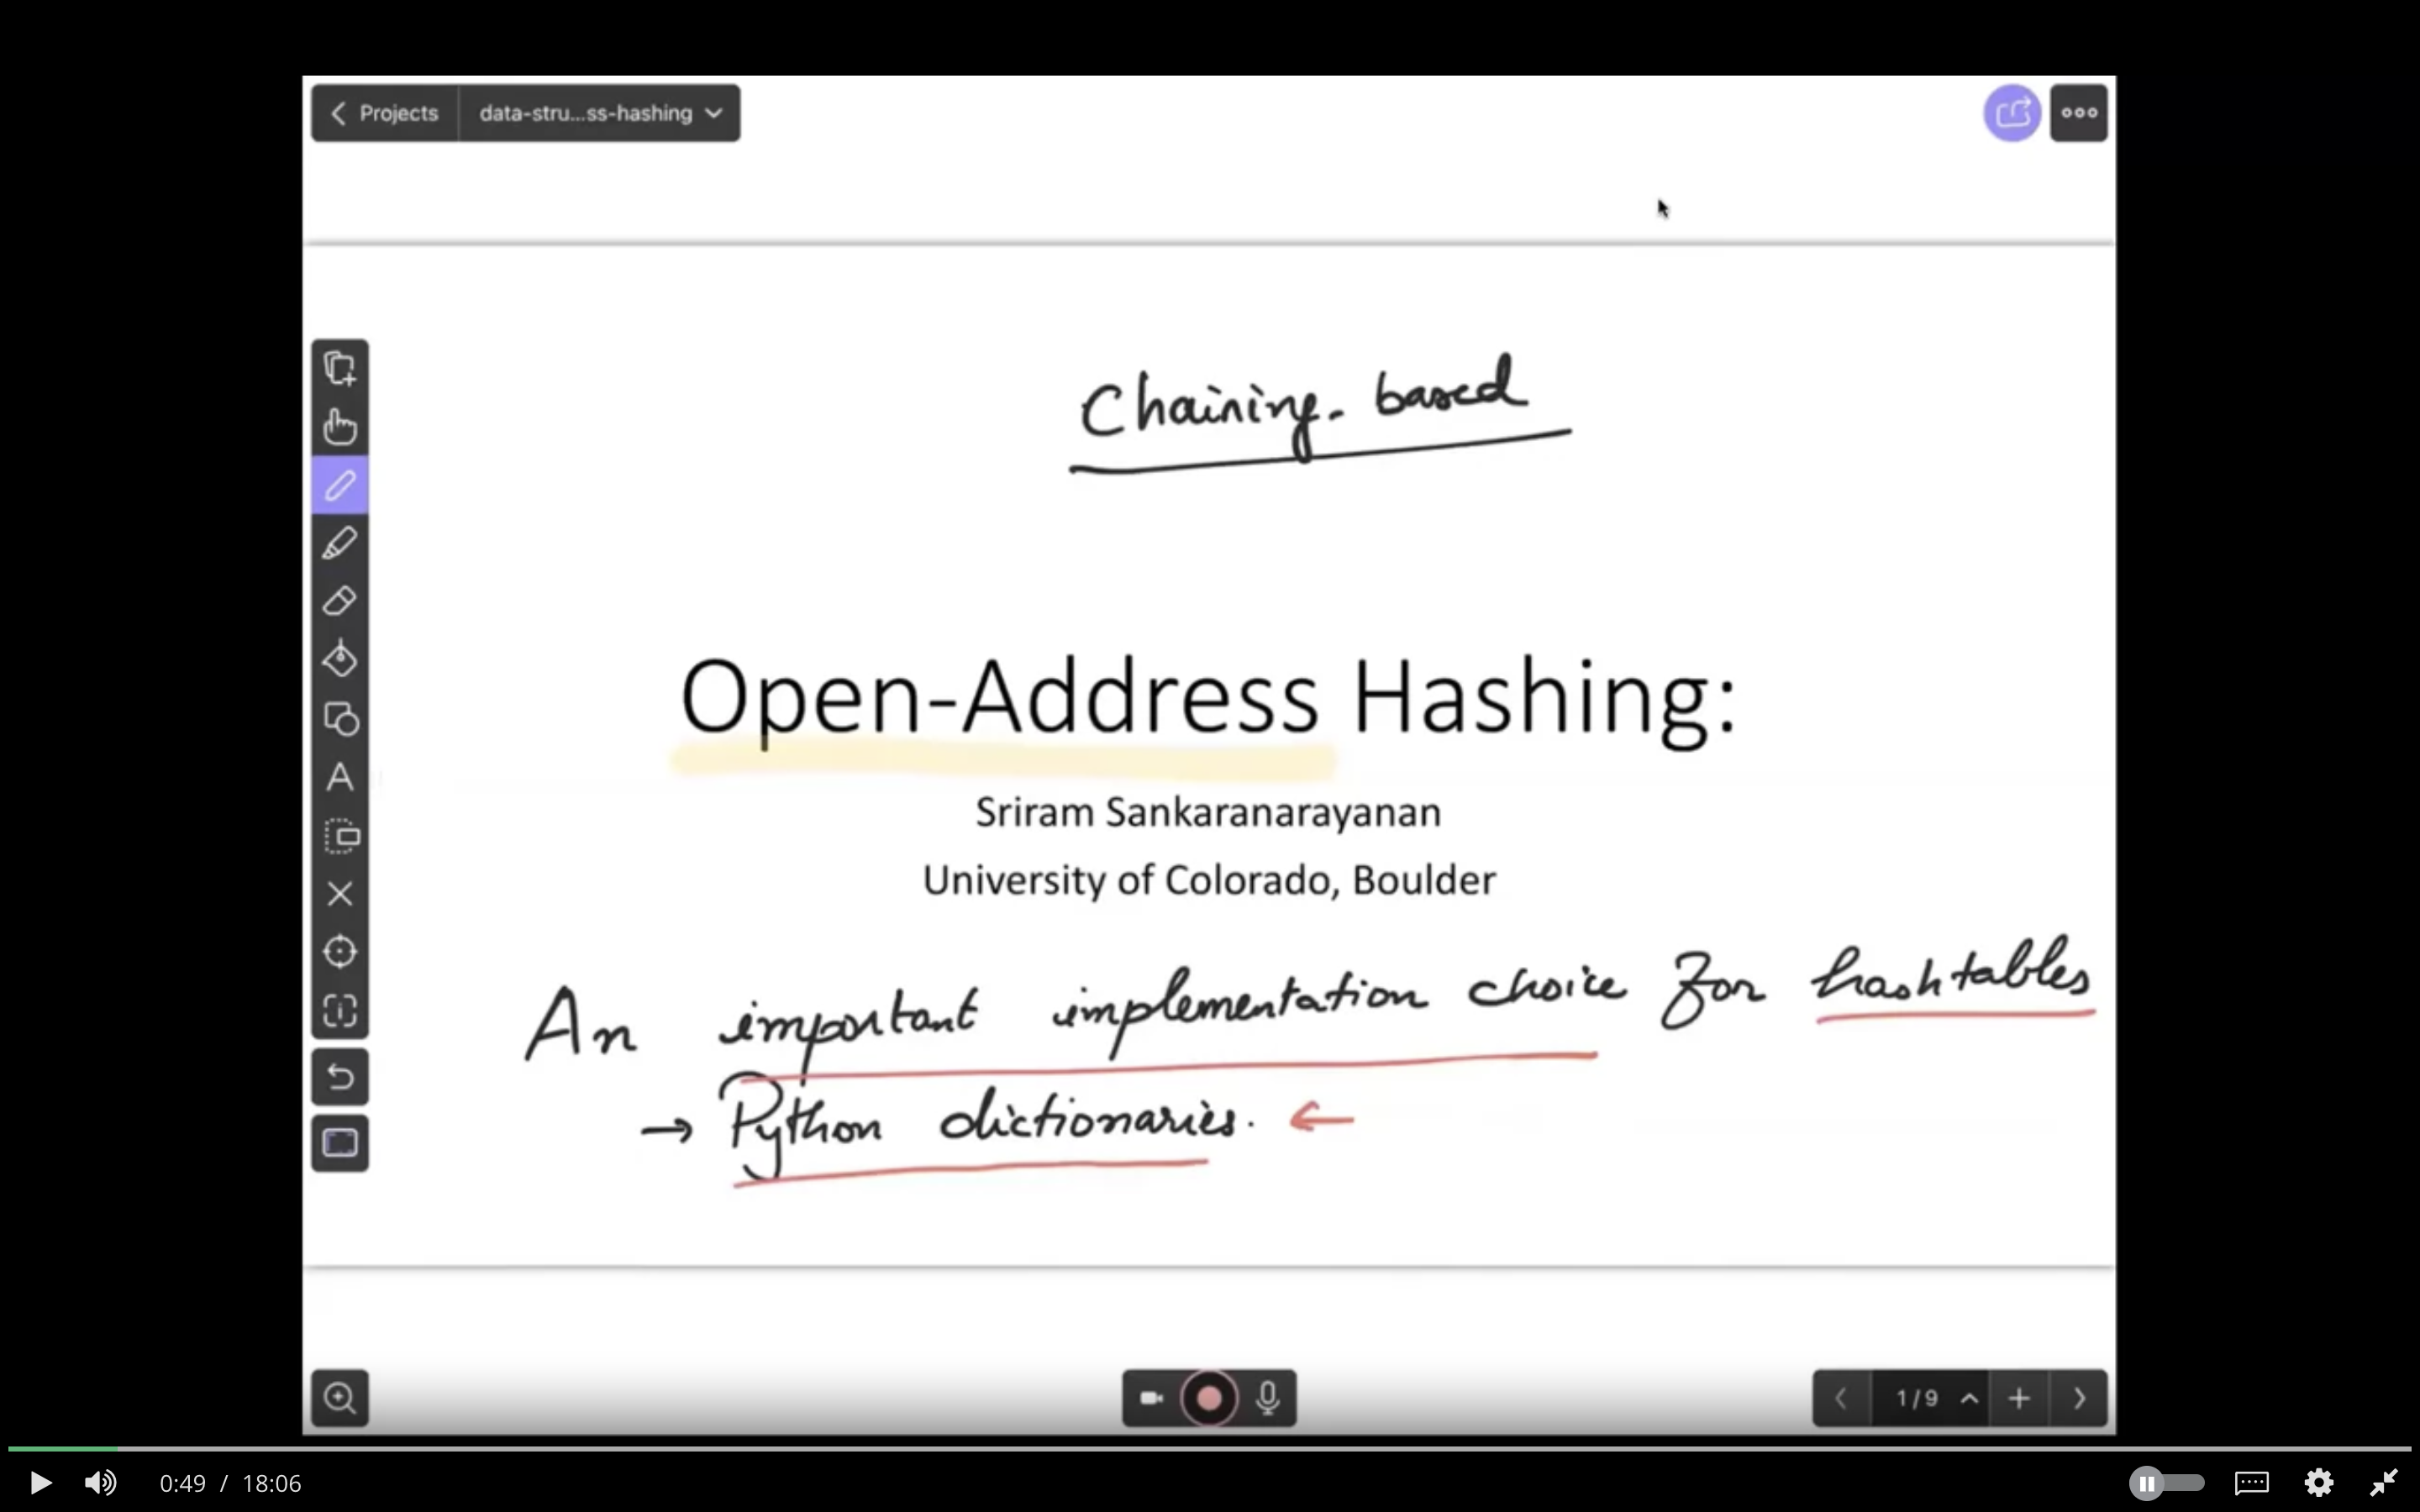 Projects data-stru...ss-hashing
Chaining-based
Open-Address Hashing:
Sriram Sankaranarayanan
University of Colorado, Boulder
An important implementation choice for hashtables
→ Python dictionaries. ←
1/9
0:49 / 18:06